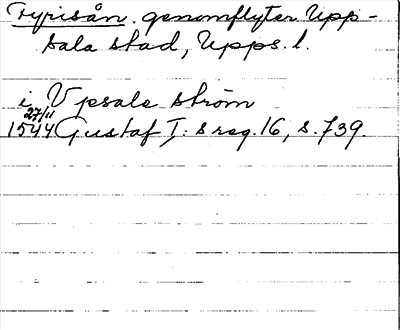 Fyrisån. genomflyter Upp-
sala stad, Upps. l.
i Vpsala ström
27/11
1544 Gustaf I: s reg. 16, s. 739.